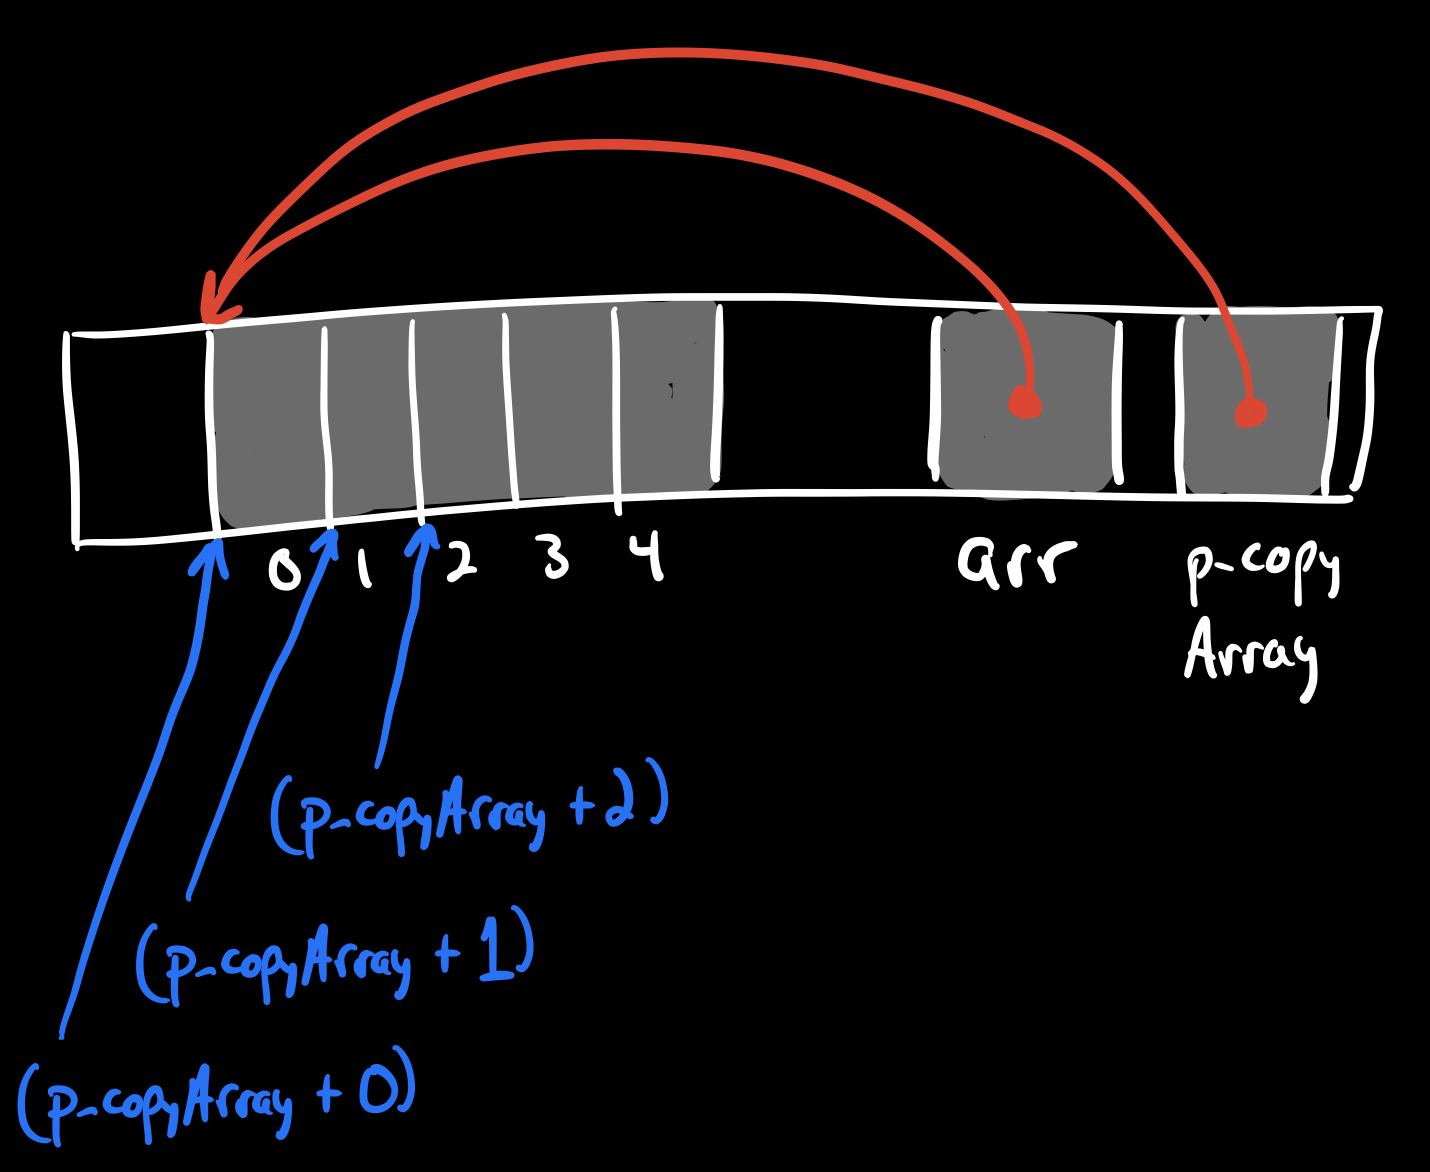 0 1 2 3 4 arr p-copy
Array
(p-copyArray + 2)
(p-copyArray + 1)
(p-copyArray + 0)